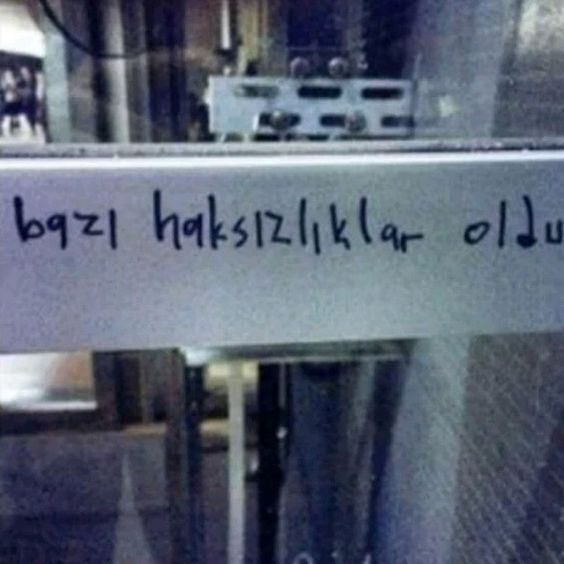 bazı haksızlıklar oldu